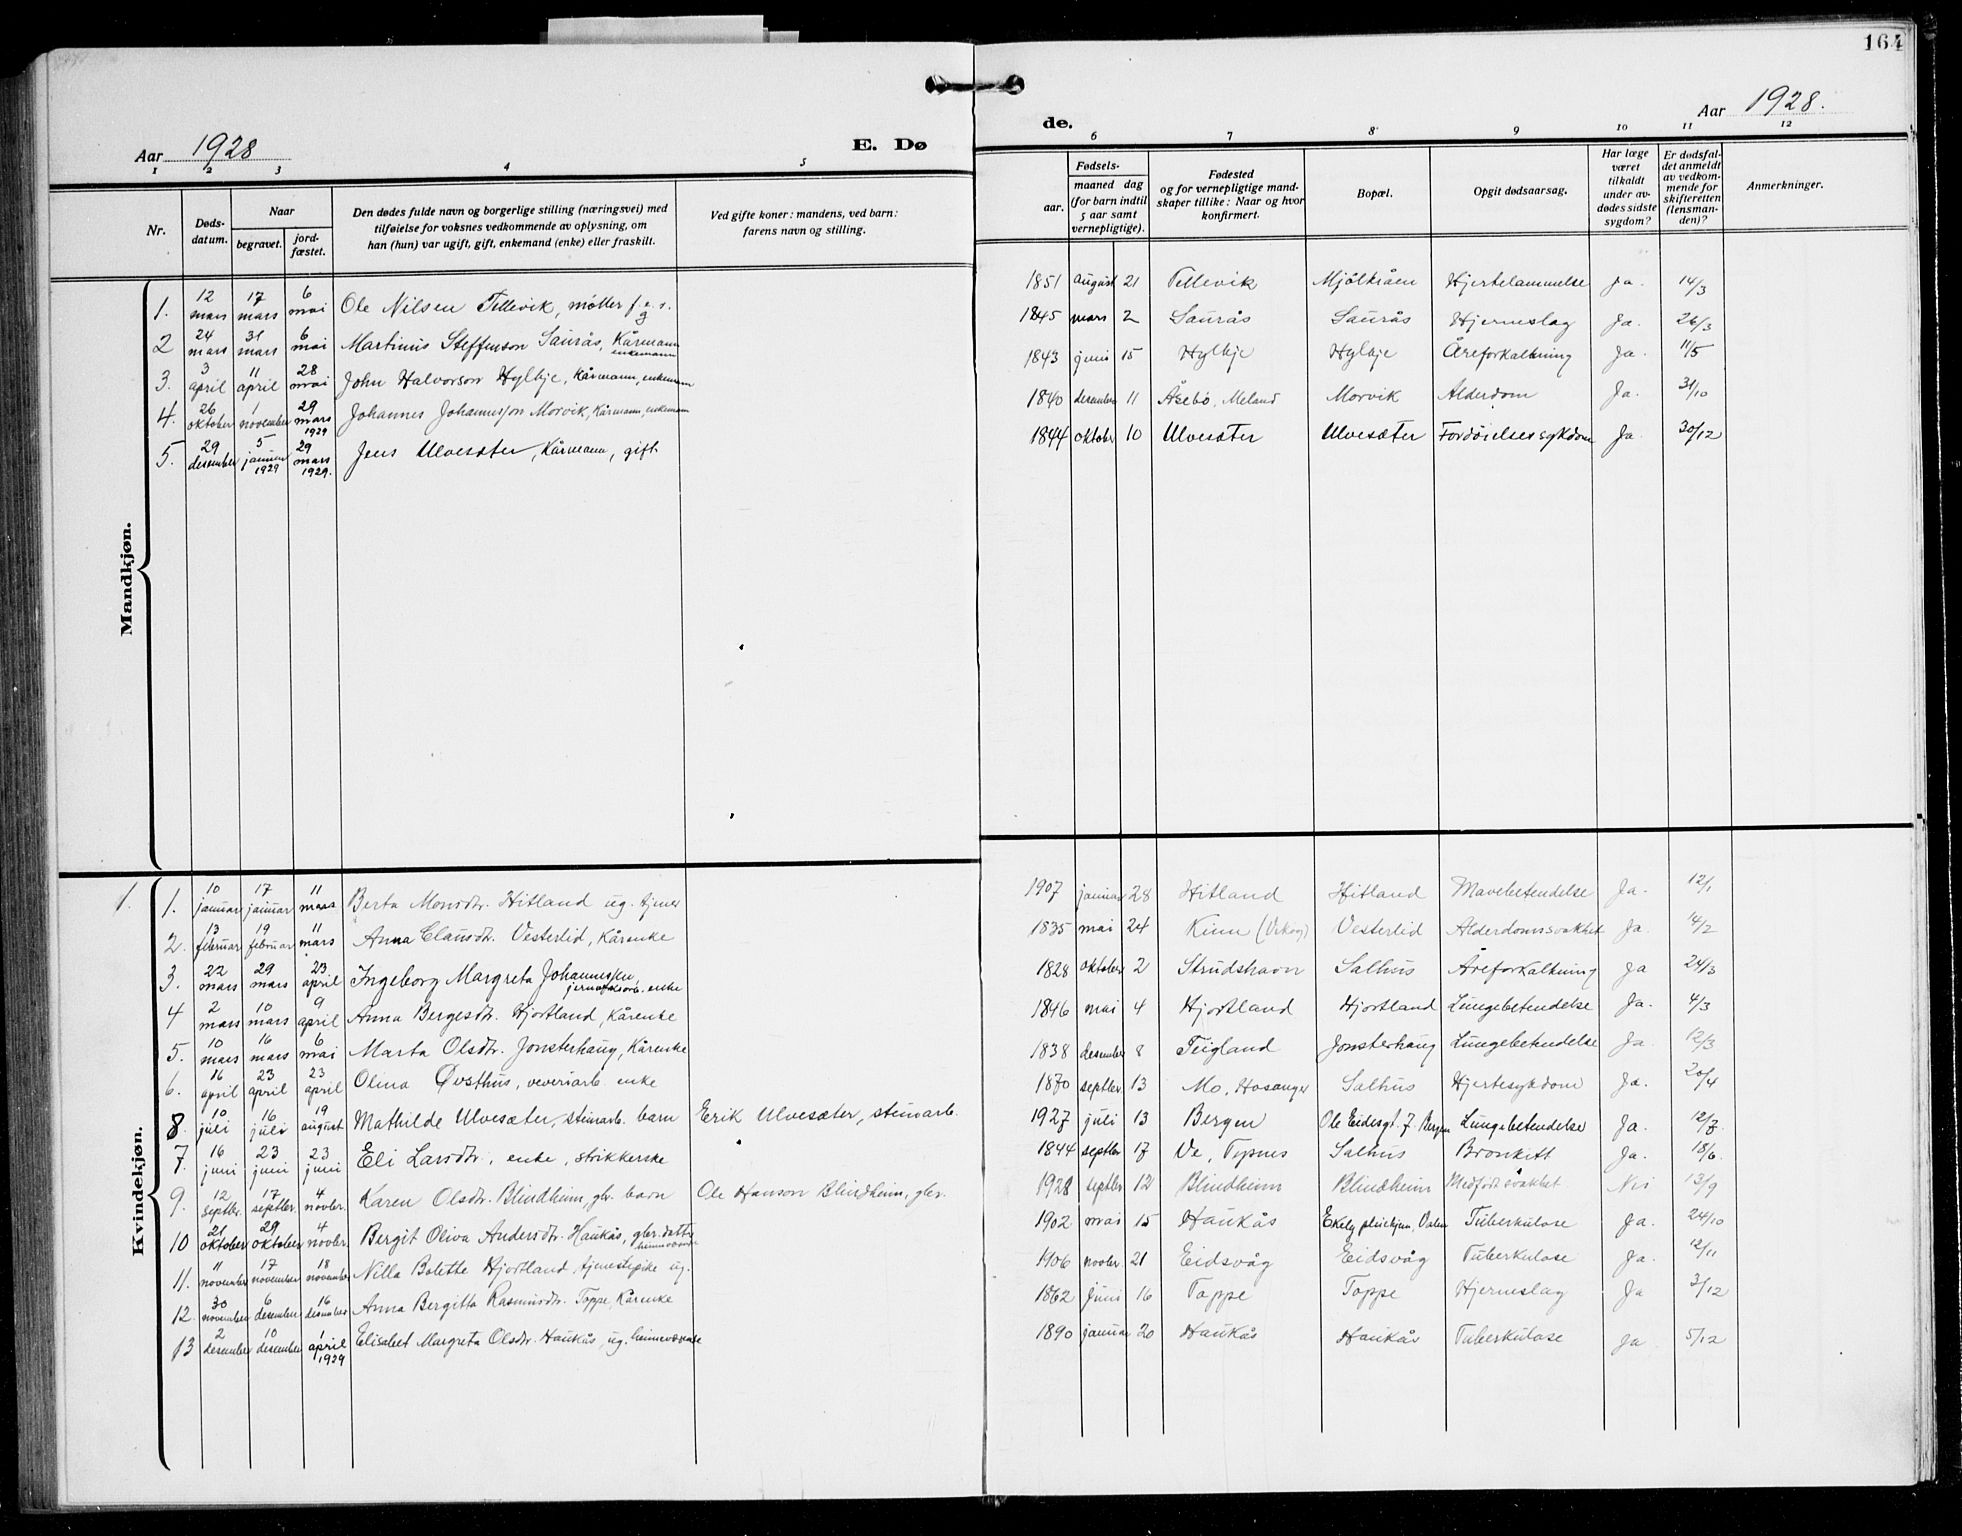 164
Aar 1928
E. Dø
de.
Aar 1928.
1 2 3 4 5 6 7 8 9 10 11 12
Nr.
Døds-
datum.
Naar
begravet.
jord-
fæstet.
Den dødes fulde navn og borgerlige stilling (næringsvei) med
tilføielse for voksnes vedkommende av oplysning, om
han (hun) var ugift, gift, enkemand (enke) eller fraskilt.
Ved gifte koner: mandens, ved barn:
farens navn og stilling.
Fødsels-
aar.
maaned dag
(for barn indtil
5 aar samt
vernepligtige).
Fødested
og for vernepligtige mand-
skaper tillike: Naar og hvor
konfirmert.
Bopæl.
Opgit dødsaarsag.
Har læge
været
tilkaldt
under av-
dødes sidste
sygdom?
Er dødsfal-
det anmeldt
av vedkom-
mende for
skifteretten
(lensman-
den)?
Anmerkninger.
Mandkjøn.
1. 12 mars 17 mars 6 mai Ole Nilsen Tellevik, møller 1851 august 21 Tellevik Mjølkråen Hjertelammelse Ja. 14/3
2 24 mars 31 mars 6 mai Martinus Steffenson Saurås, Kårmann enkemann 1845 mars 2 Saurås Saurås Hjerneslag Ja. 26/3
3. 3 april 11 april 28 mai John Halvorson Hylkje, Kårmann, enkemann 1843 juni 15 Hylkje Hylkje Åreforkalkning Ja 11/5
4. 26 oktober 1 november 29 mars 1929 Johannes Johannesson Morvik, Kårmann, enkemann 1840 desember 11 Åsebø, Meland Morvik Alderdom Ja. 31/10
5. 29 desember 5 januar 1929 29 mars 1929. Jens Ulvesæter, Kårmann, gift. 1844 oktober 10 Ulvesæter Ulvesæter Fordøielsessykdom Ja 30/12
Kvindekjøn.
1. 1. 10 januar 17 januar 11 mars Berta Monsdtr. Hitland ug. tjener 1907 januar 28 Hitland Hitland Mavebetendelse Ja. 12/1
2. 13 februar 19 februar 11 mars Anna Clausdtr. Vesterlid, Kårenke 1835 mai 24 Kinn Vesterlid Alderdomssvakhet Ja. 14/2
3. 22 mars 29 mars 23 april Ingeborg Margreta Johannessen enke 1828 oktober 2 Strudshavn Salhus Åreforkalkning Ja 24/3
4 2 mars 10 mars 9 april Anna Bergesdtr. Hjortland, Kårenke 1846 mai 4 Hjortland Hjortland Lungebetendelse Ja. 4/3
5. 10 mars 16 mars 6 mai Marta Olsdtr. Jonsterhaug, Kårenke 1838 desember 8 Teigland Jonsterhaug Lungebetendelse Ja. 12/3
6. 16 april 23 april 23 april Olina Østhus, veveriarb. enke 1870 septbr. 13 Mo, Hosanger Salhus Hjertesykdom Ja. 20/4
8. 10 juli 16 juli 19 august Mathilde Ulvesæter, steinarb. barn Erik Ulvesæter, steinarb. 1927 juli 13 Bergen Ole Eidesgt. 7. Bergen Lungebetendelse Ja. 12/7
7. 16 juni 23 juni 23 juni Eli Larsdtr., enke, strikkerske 1844 septbr 17 Ve, Tysnes Salhus Bronkitt Ja. 18/6.
9. 12 septbr. 17 septbr. 4 novbr. Karen Olsdtr. Blindheim, gbr. barn Ole Hanson Blindheim, gbr. 1928 septbr 12 Blindheim Blindheim Medfødt svakhet Nei 13/9
10 21 oktober 29 oktober 4 novbr. Bergit Oliva Andersdtr. Haukås, gbr. datter heimeværende 1902 mai 15 Haukås Ekely pleiehjem, Tuberkulose Ja. 24/10
11. 11 november 17 november 18 november Nilla Bolette Hjortland, tjenestepike ug. 1906 novbr. 21 Eidsvåg Eidsvåg Tuberkulose Ja. 12/11
12. 30 november 6 desember 16 desember Anna Bergitta Rasmusdtr. Toppe, Kårenke 1862 Juni 16 Toppe Toppe Hjerneslag Ja 3/12
13 2 desember 10 desember 1 april 1929 Elisabet Margreta Olsdtr. Haukås, ug. heimeværende 1890 januar 20 Haukås Haukås Tuberkulose Ja 5/12